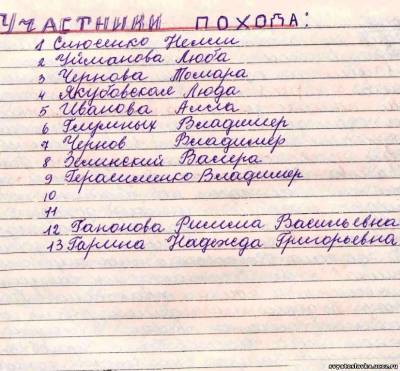 Участники похода:
1 Слюсенко Нелли
2 Уйманова Люба
3 Чернова Томара
4 Якубовская Люда
5 Иванова Алла
6 Владимер
7 Чернов Владимер
8 Зелинский Валера
9 Герасименко Владимер
10
11
12 Гапонова Римма Васильевна
13 Гарина Надежда Григорьевна
svyatoslavka.ucoz.ru